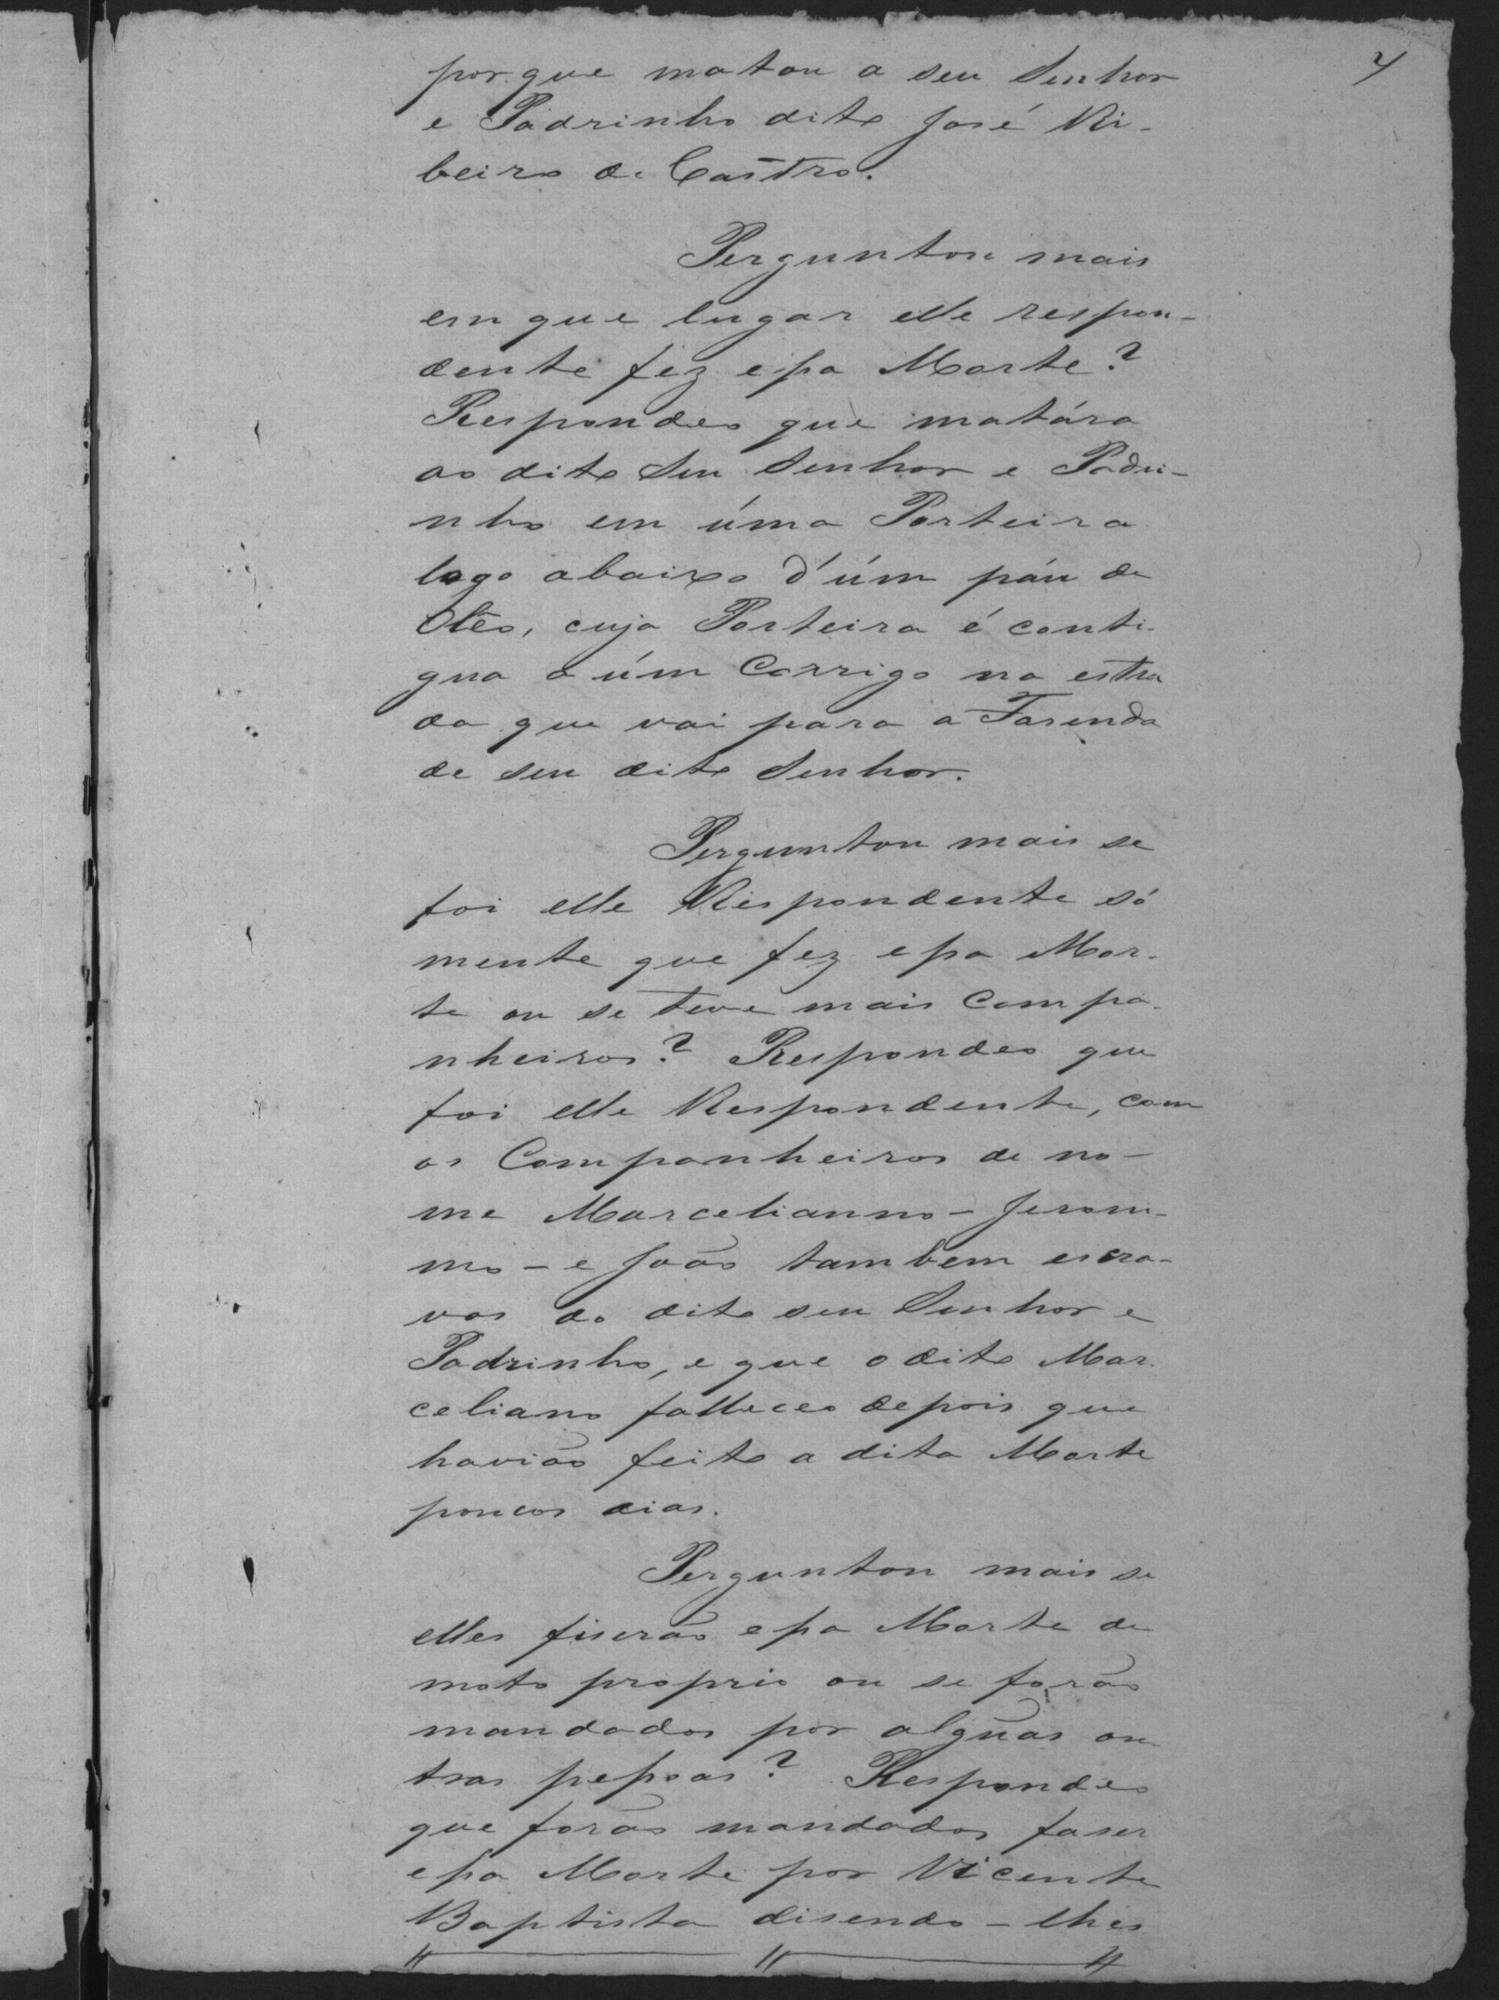 4
porque matou a seu Senhor
e Padrinho dito José Ri-
beiro de Castro.
Perguntou mais
em que lugar elle respon-
dente fez essa Morte?
Respondeo que matára
ao dito seu Senhor e Padri-
nho em úma Porteira
logo abaixo d'úm páu de
Olêo, cuja Porteira é conti-
gua a úm Corrigo na estra
da que vai para a Fasenda
de seu dito Senhor.
Perguntou mais se
foi elle Respondente só
mente que fez essa Mor-
te ou se teve mais Compa-
nheiros? Respondeo que
foi elle Respondente, com
os Companheiros de no-
me Marcelianno - Jeroni-
mo - e João tambem escra-
vos do dito seu Senhor e
Padrinho, e que o dito Mar-
celiano falleceo depois que
havião feito a dita Morte
poucos dias.
Perguntou mais se
elles fiserão essa Morte de
moto proprio ou se forão
mandados por algũas ou-
tras pessoas? Respondeo
que forão mandados faser
essa Morte por Vicente
Baptista disendo-lhes